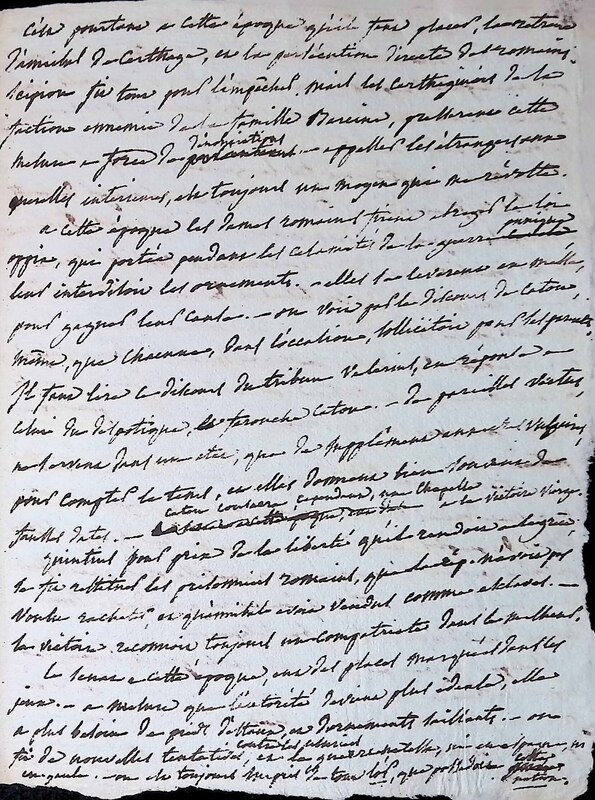 C'est pourtant a cette époque qu'il faut placer, la retraite
d'annibal de Carthage, et la persécution directe des romains.
Scipion fit tout pour l'empêcher. mais les carthaginois de la
faction ennemie de la famille Barcine, préférerent cette
mesure a force de dénonciations. — appeller les étrangers aux
querelles interieures, est toujours un moyen qui me révolte.
a cette époque les dames romaines firent abroger la loi
oppia, qui portée pendant les calamités de la guerre punique
leur interdisoit les ornements. — elles se leverent en masse,
pour gagner leur cause. — on voit par le discours de Caton,
même, que chacune, dans l'occasion, sollicitoit pour ses parents
Il faut lire ce discours du tribun Valerius, en réponse a
celui du despotique, farouche Caton. — de pareilles vertus,
ne servent dans un état, que de supplément aux vulgaires,
pour compter le tems, et elles donnent bien souvent de
fausses dates. — caton consacra, cependant, une chapelle
a la victoire vierge.
quintius pour prix de la liberté qu'il rendoit a la grèce
se fit restituer les prisonniers romains, que la rép. n'avoit pas
voulu racheter et qu'annibal avoit vendus comme esclaves. —
la victoire reconnoit toujours un compatriote dans le malheur.
le senat a cette époque, eut des places marquées dans les
jeux. — a mesure que l'autorité devient plus idéale, elle
a plus besoin de et d'ornements brillants. — on
fit de nouvelles tentatives, et la guerre en espagne, et
en gaule. — on est toujours surpris de tout l'or, que possédoit cette
nation.